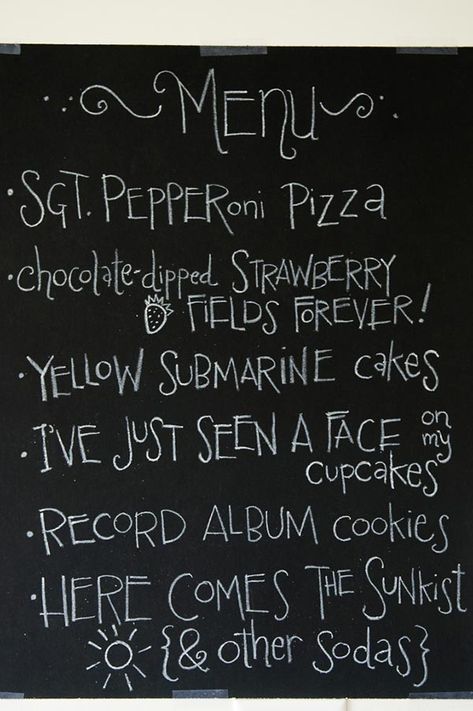 MENU
• SGT. PEPPERoni Pizza
• chocolate-dipped STRAWBERRY
FIELDS FOREVER!
• YELLOW SUBMARINE cakes
• I'VE JUST SEEN A FACE on my
cupcakes
• RECORD ALBUM cookies
• HERE COMES THE SUNKIST
{& other sodas}